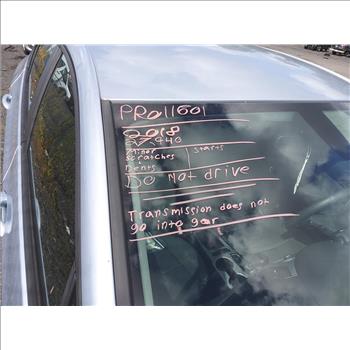 PRO11601
2018
27,440
Minor
scratches
starts
Dents
Do Not drive
Transmission does not
go into gear